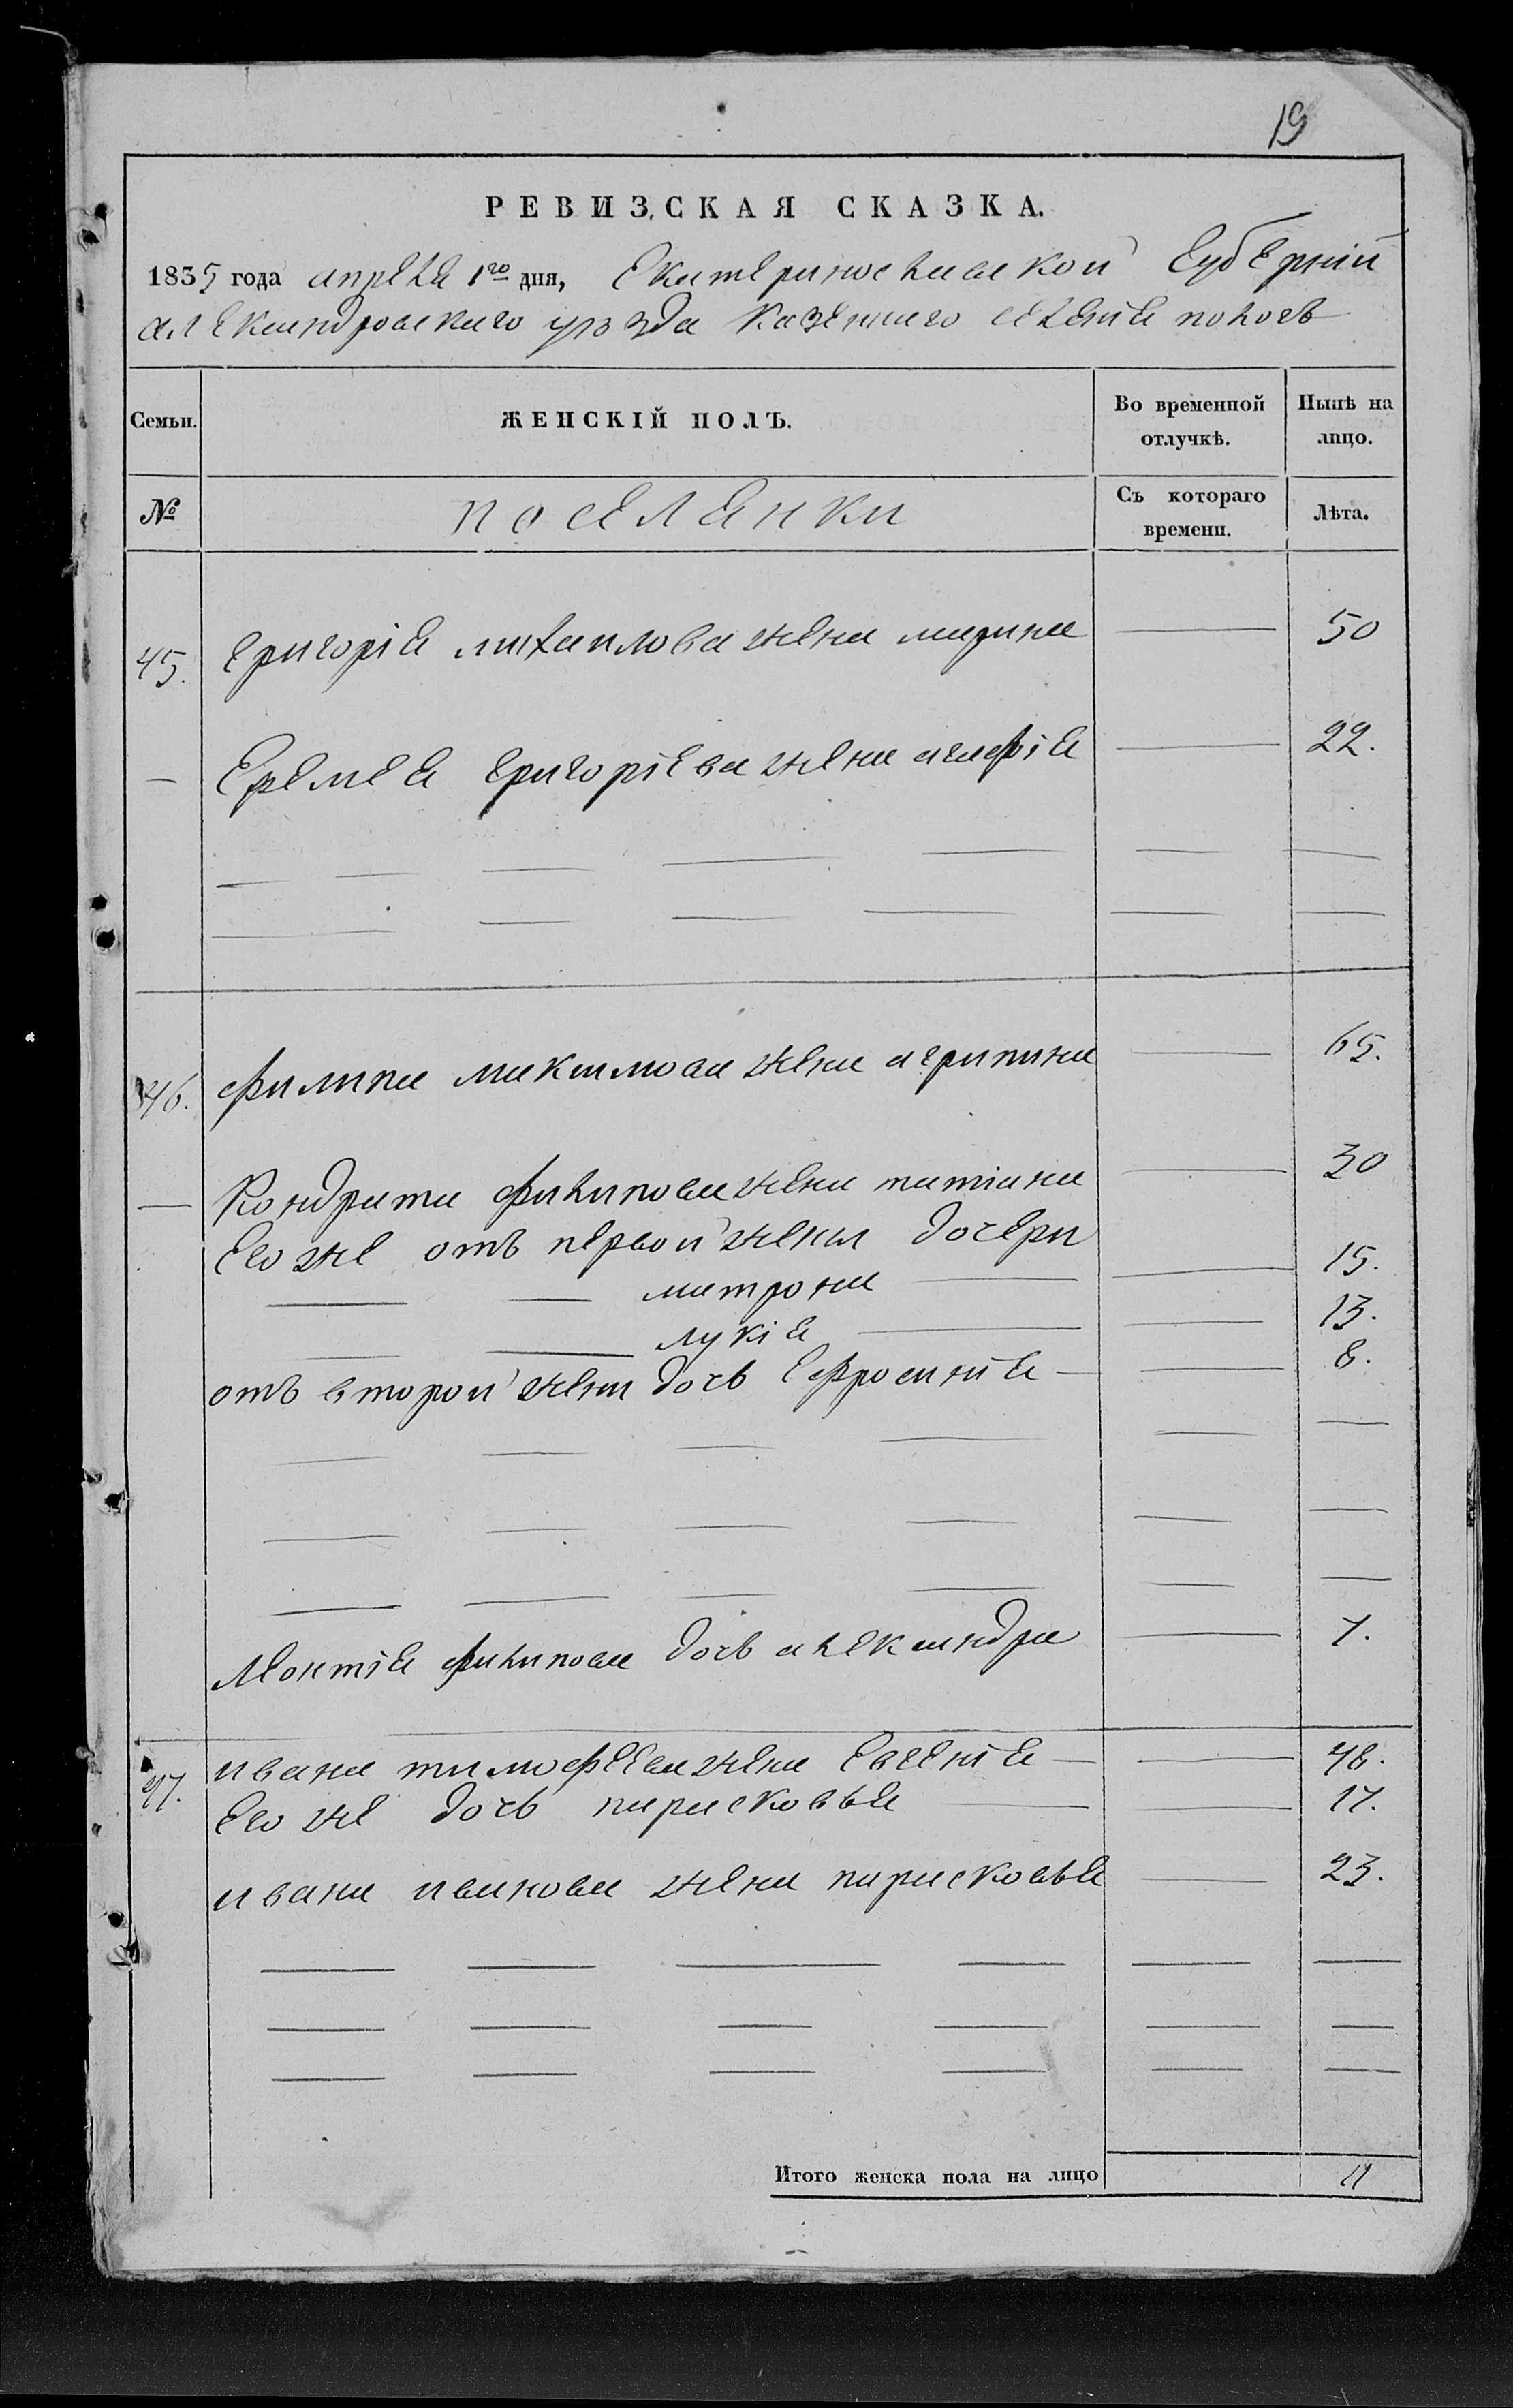 19
РЕВИЗСКАЯ СКАЗКА.
1835 года апреля 1го дня, Екатеринославской Губерній
александровского уѣзда казенного селенія пологъ
Семьи.
ЖЕНСКІЙ ПОЛЪ.
Во временной отлучкѣ.
Нынѣ на лицо.
№
поселянки
Съ котораго времени.
Лѣта.
45. григорія михаилова жена марина — 50
— Еремея григоріева жена агафія — 22.
46. филипа максимова жена агрипина — 65.
— Кондрата филипова жена татіана — 30
Его же отъ первой жены дочери
матрона — 15.
лукія — 13.
отъ второй жены дочь Ефросинія — 8.
Леонтія филипова дочь александра — 7.
47. ивана тимофеева жена Евгенія — 48.
Его же дочь парасковья — 17.
ивана иванова жена парасковья — 23.
Итого женска пола на лицо 11